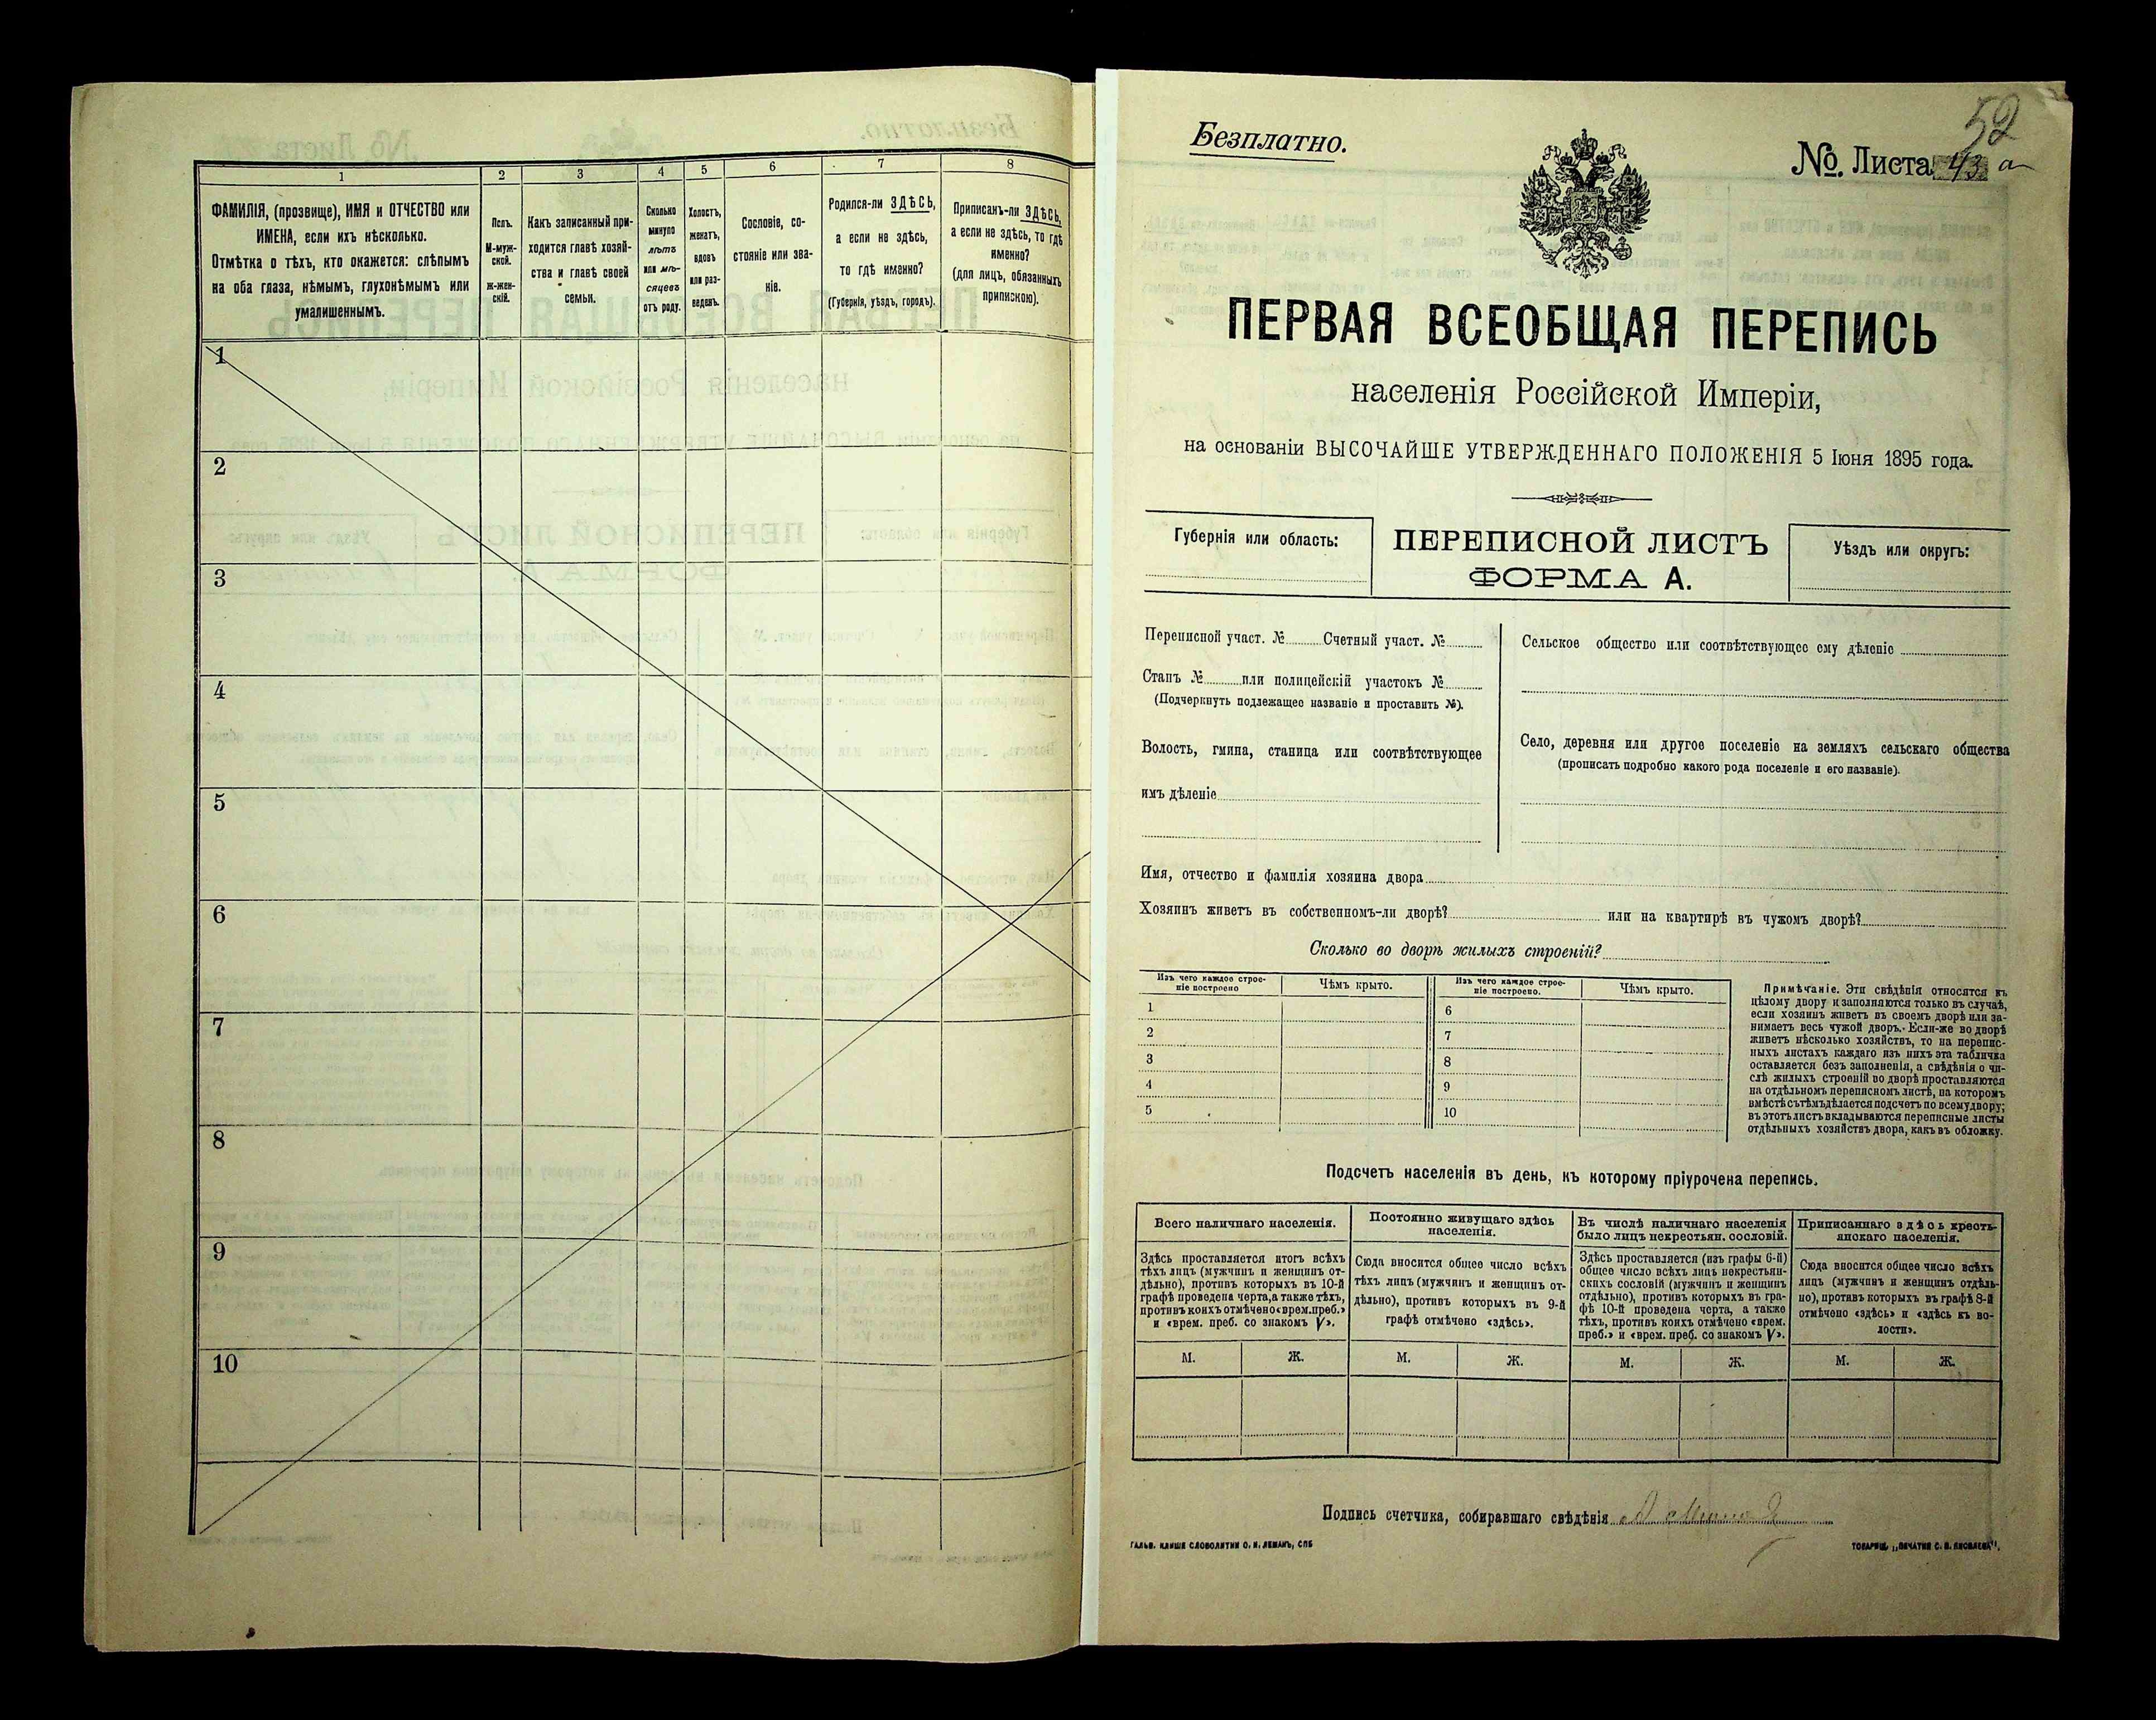 1
2
3
4
5
6
7
8
ФАМИЛІЯ, (прозвище), ИМЯ и ОТЧЕСТВО или
ИМЕНА, если ихъ нѣсколько.
Отмѣтка о тѣхъ, кто окажется: слѣпымъ
на оба глаза, нѣмымъ, глухонѣмымъ или
умалишеннымъ.
Полъ.
М-муж-
ской.
ж-жен-
скій.
Какъ записанный при-
ходится главѣ хозяй-
ства и главѣ своей
семьи.
Сколько
минуло
лѣтъ
или мѣ-
сяцевъ
отъ роду.
Холостъ,
женатъ,
вдовъ
или раз-
веденъ.
Сословіе, со-
стояніе или зва-
ніе.
Родился-ли ЗДѢСЬ,
а если не здѣсь,
то гдѣ именно?
(Губернія, уѣздъ, городъ).
Приписанъ-ли ЗДѢСЬ,
а если не здѣсь, то гдѣ
именно?
(для лицъ, обязанныхъ
припискою).
1
2
3
4
5
6
7
8
9
10
52
Безплатно.
№. Листа 43 а
ПЕРВАЯ ВСЕОБЩАЯ ПЕРЕПИСЬ
населенія Россійской Имперіи,
на основаніи ВЫСОЧАЙШЕ УТВЕРЖДЕННАГО ПОЛОЖЕНІЯ 5 Іюня 1895 года.
Губернія или область:
ПЕРЕПИСНОЙ ЛИСТЪ
ФОРМА А.
Уѣздъ или округъ:
Переписной участ. № Счетный участ. №
Станъ № или полицейскій участокъ №
(Подчеркнуть подлежащее названіе и проставить №).
Волость, гмина, станица или соотвѣтствующее
имъ дѣленіе
Сельское общество или соотвѣтствующее ему дѣленіе
Село, деревня или другое поселеніе на земляхъ сельскаго общества
(прописать подробно какого рода поселеніе и его названіе).
Имя, отчество и фамилія хозяина двора
Хозяинъ живетъ въ собственномъ-ли дворѣ? или на квартирѣ въ чужомъ дворѣ?
Сколько во дворѣ жилыхъ строеній?
Изъ чего каждое строе-
ніе построено
Чѣмъ крыто.
Изъ чего каждое строе-
ніе построено.
Чѣмъ крыто.
1
2
3
4
5
6
7
8
9
10
Примѣчаніе. Эти свѣдѣнія относятся къ
цѣлому двору и заполняются только въ случаѣ,
если хозяинъ живетъ въ своемъ дворѣ или за-
нимаетъ весь чужой дворъ. Если-же во дворѣ
живетъ нѣсколько хозяйствъ, то на перепис-
ныхъ листахъ каждаго изъ нихъ эта табличка
оставляется безъ заполненія, а свѣдѣнія о чи-
слѣ жилыхъ строеній во дворѣ проставляются
на отдѣльномъ переписномъ листѣ, на которомъ
вмѣстѣ съ тѣмъ дѣлается подсчетъ по всему двору;
въ этотъ листъ вкладываются переписные листы
отдѣльныхъ хозяйствъ двора, какъ въ обложку.
Подсчетъ населенія въ день, къ которому пріурочена перепись.
Всего наличнаго населенія.
Здѣсь проставляется итогъ всѣхъ
тѣхъ лицъ (мужчинъ и женщинъ от-
дѣльно), противъ которыхъ въ 10-й
графѣ проведена черта, а также тѣхъ,
противъ коихъ отмѣчено «врем. преб.»
и «врем. преб. со знакомъ V».
М. Ж.
Постоянно живущаго здѣсь
населенія.
Сюда вносится общее число всѣхъ
тѣхъ лицъ (мужчинъ и женщинъ от-
дѣльно), противъ которыхъ въ 9-й
графѣ отмѣчено «здѣсь».
М. Ж.
Въ числѣ наличнаго населенія
было лицъ некрестьян. сословій.
Здѣсь проставляется (изъ графы 6-й)
общее число всѣхъ лицъ некрестьян-
скихъ сословій (мужчинъ и женщинъ
отдѣльно), противъ которыхъ въ гра-
фѣ 10-й проведена черта, а также
тѣхъ, противъ коихъ отмѣчено «врем.
преб.» и «врем. преб. со знакомъ V».
М. Ж.
Приписаннаго здѣсь кресть-
янскаго населенія.
Сюда вносится общее число всѣхъ
лицъ (мужчинъ и женщинъ отдѣль-
но), противъ которыхъ въ графѣ 8-й
отмѣчено «здѣсь» и «здѣсь къ во-
лости».
М. Ж.
Подпись счетчика, собиравшаго свѣдѣнія
ГАЛЬВ. КЛИШЕ СЛОВОЛИТНИ О. И. ЛЕМАНЪ, СПБ
ТОВАРИЩ. „ПЕЧАТНЯ С. П. ЯКОВЛЕВА".